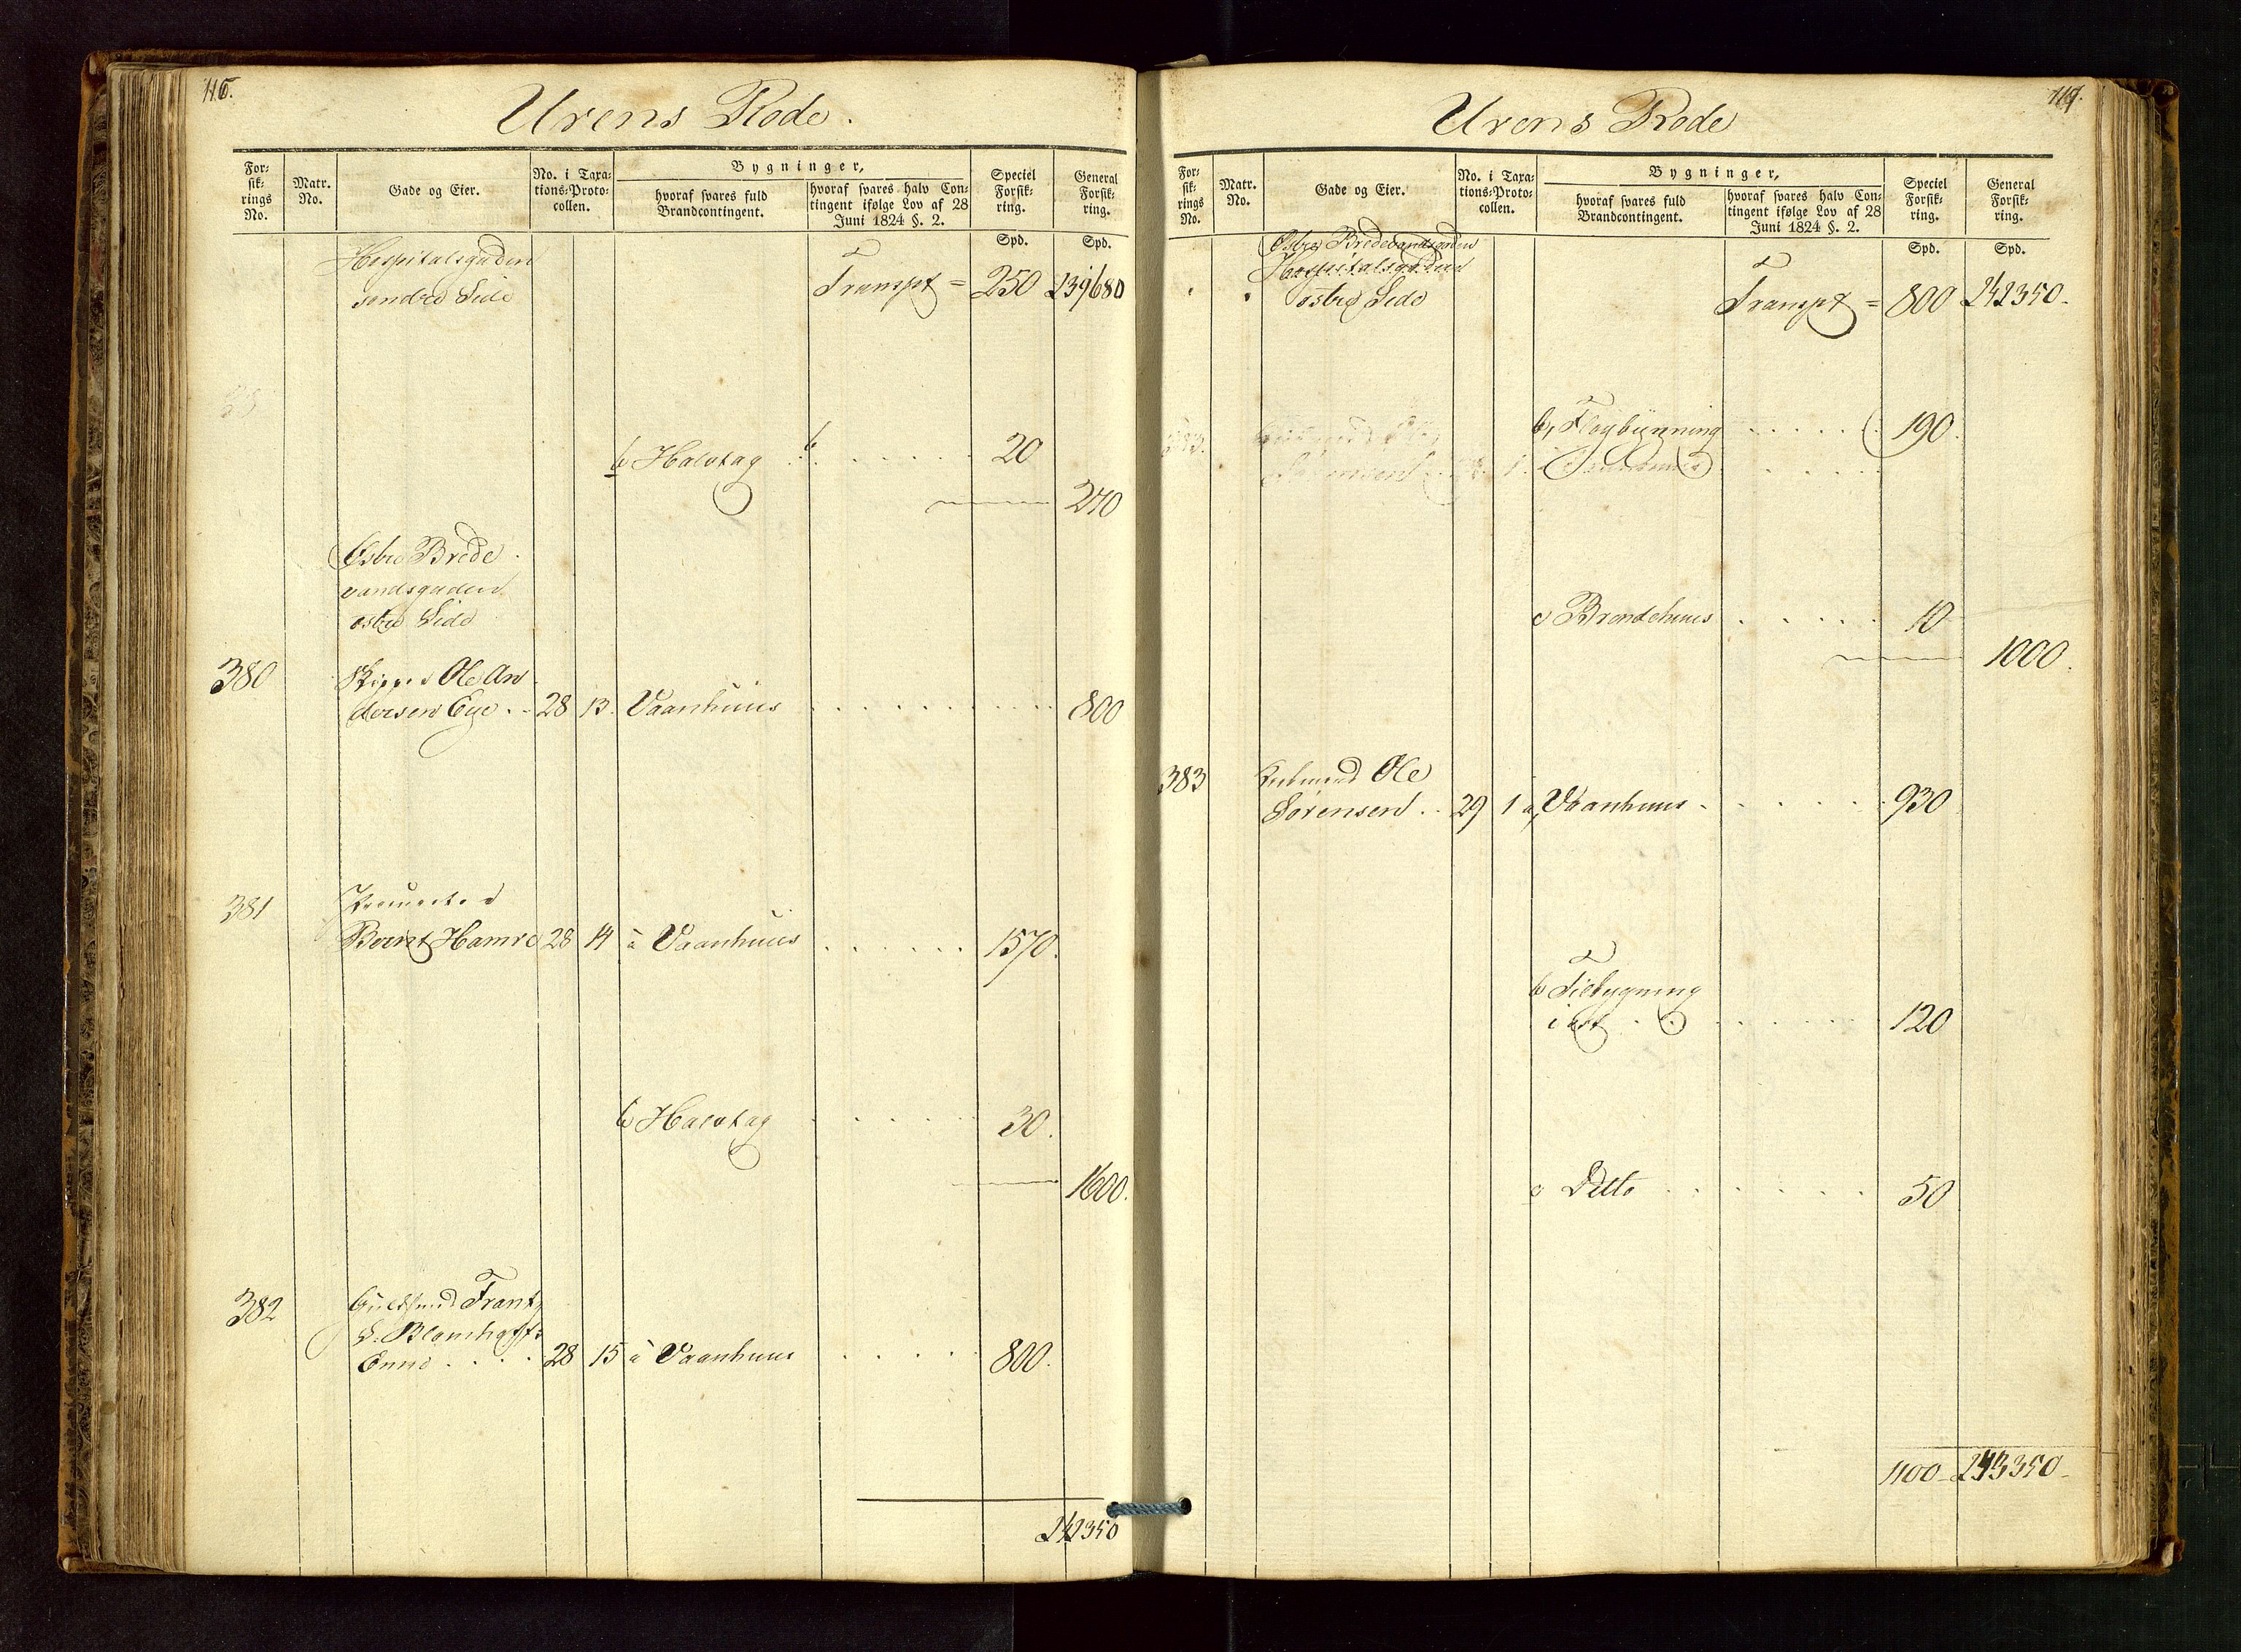 116.
Urens Rode.
For-
sik-
rings
No.
Matr.
No.
Gade og Eier.
No. i Taxa-
tions-Proto-
collen.
Bygninger,
hvoraf svares fuld
Brandcontingent.
hvoraf svares halv Con-
tingent ifølge Lov af 28
Juni 1824 §. 2.
Speciel
Forsik-
ring.
General
Forsik-
ring.
Spd. Spd.
Hospitalsgaden
søndre Side Transpt = 250 239680
b Halvtag 20
270
Østre Brede
vandsgaden
østre Side
380 Skipper Ole An
dersen Eye 28 13 Vaanhuus 800
381
Bernt Hamre 28 14 a Vaanhuus 1570.
b Halvtag 30.
1600.
382 Guldsmed Frantz
Enke 28 15 a Vaanhuus 800.
242350
117.
Urens Rode
For-
sik-
rings
No.
Matr.
No.
Gade og Eier.
No. i Taxa-
tions-Proto-
collen.
Bygninger,
hvoraf svares fuld
Brandcontingent.
hvoraf svares halv Con-
tingent ifølge Lov af 28
Juni 1824 §. 2.
Speciel
Forsik-
ring.
General
Forsik-
ring.
Spd. Spd.
Østre Bredevandsgaden
Hospitalsgaden
østre Side Transpt = 800 242350.
b, Fløybygning 190.
c Brendehuus 10
1000.
383 Ole
Sørensen 29 1 a, Vaanhuus 930
b Tilbygning
i øst 120
c Ditto 50
1100 243350